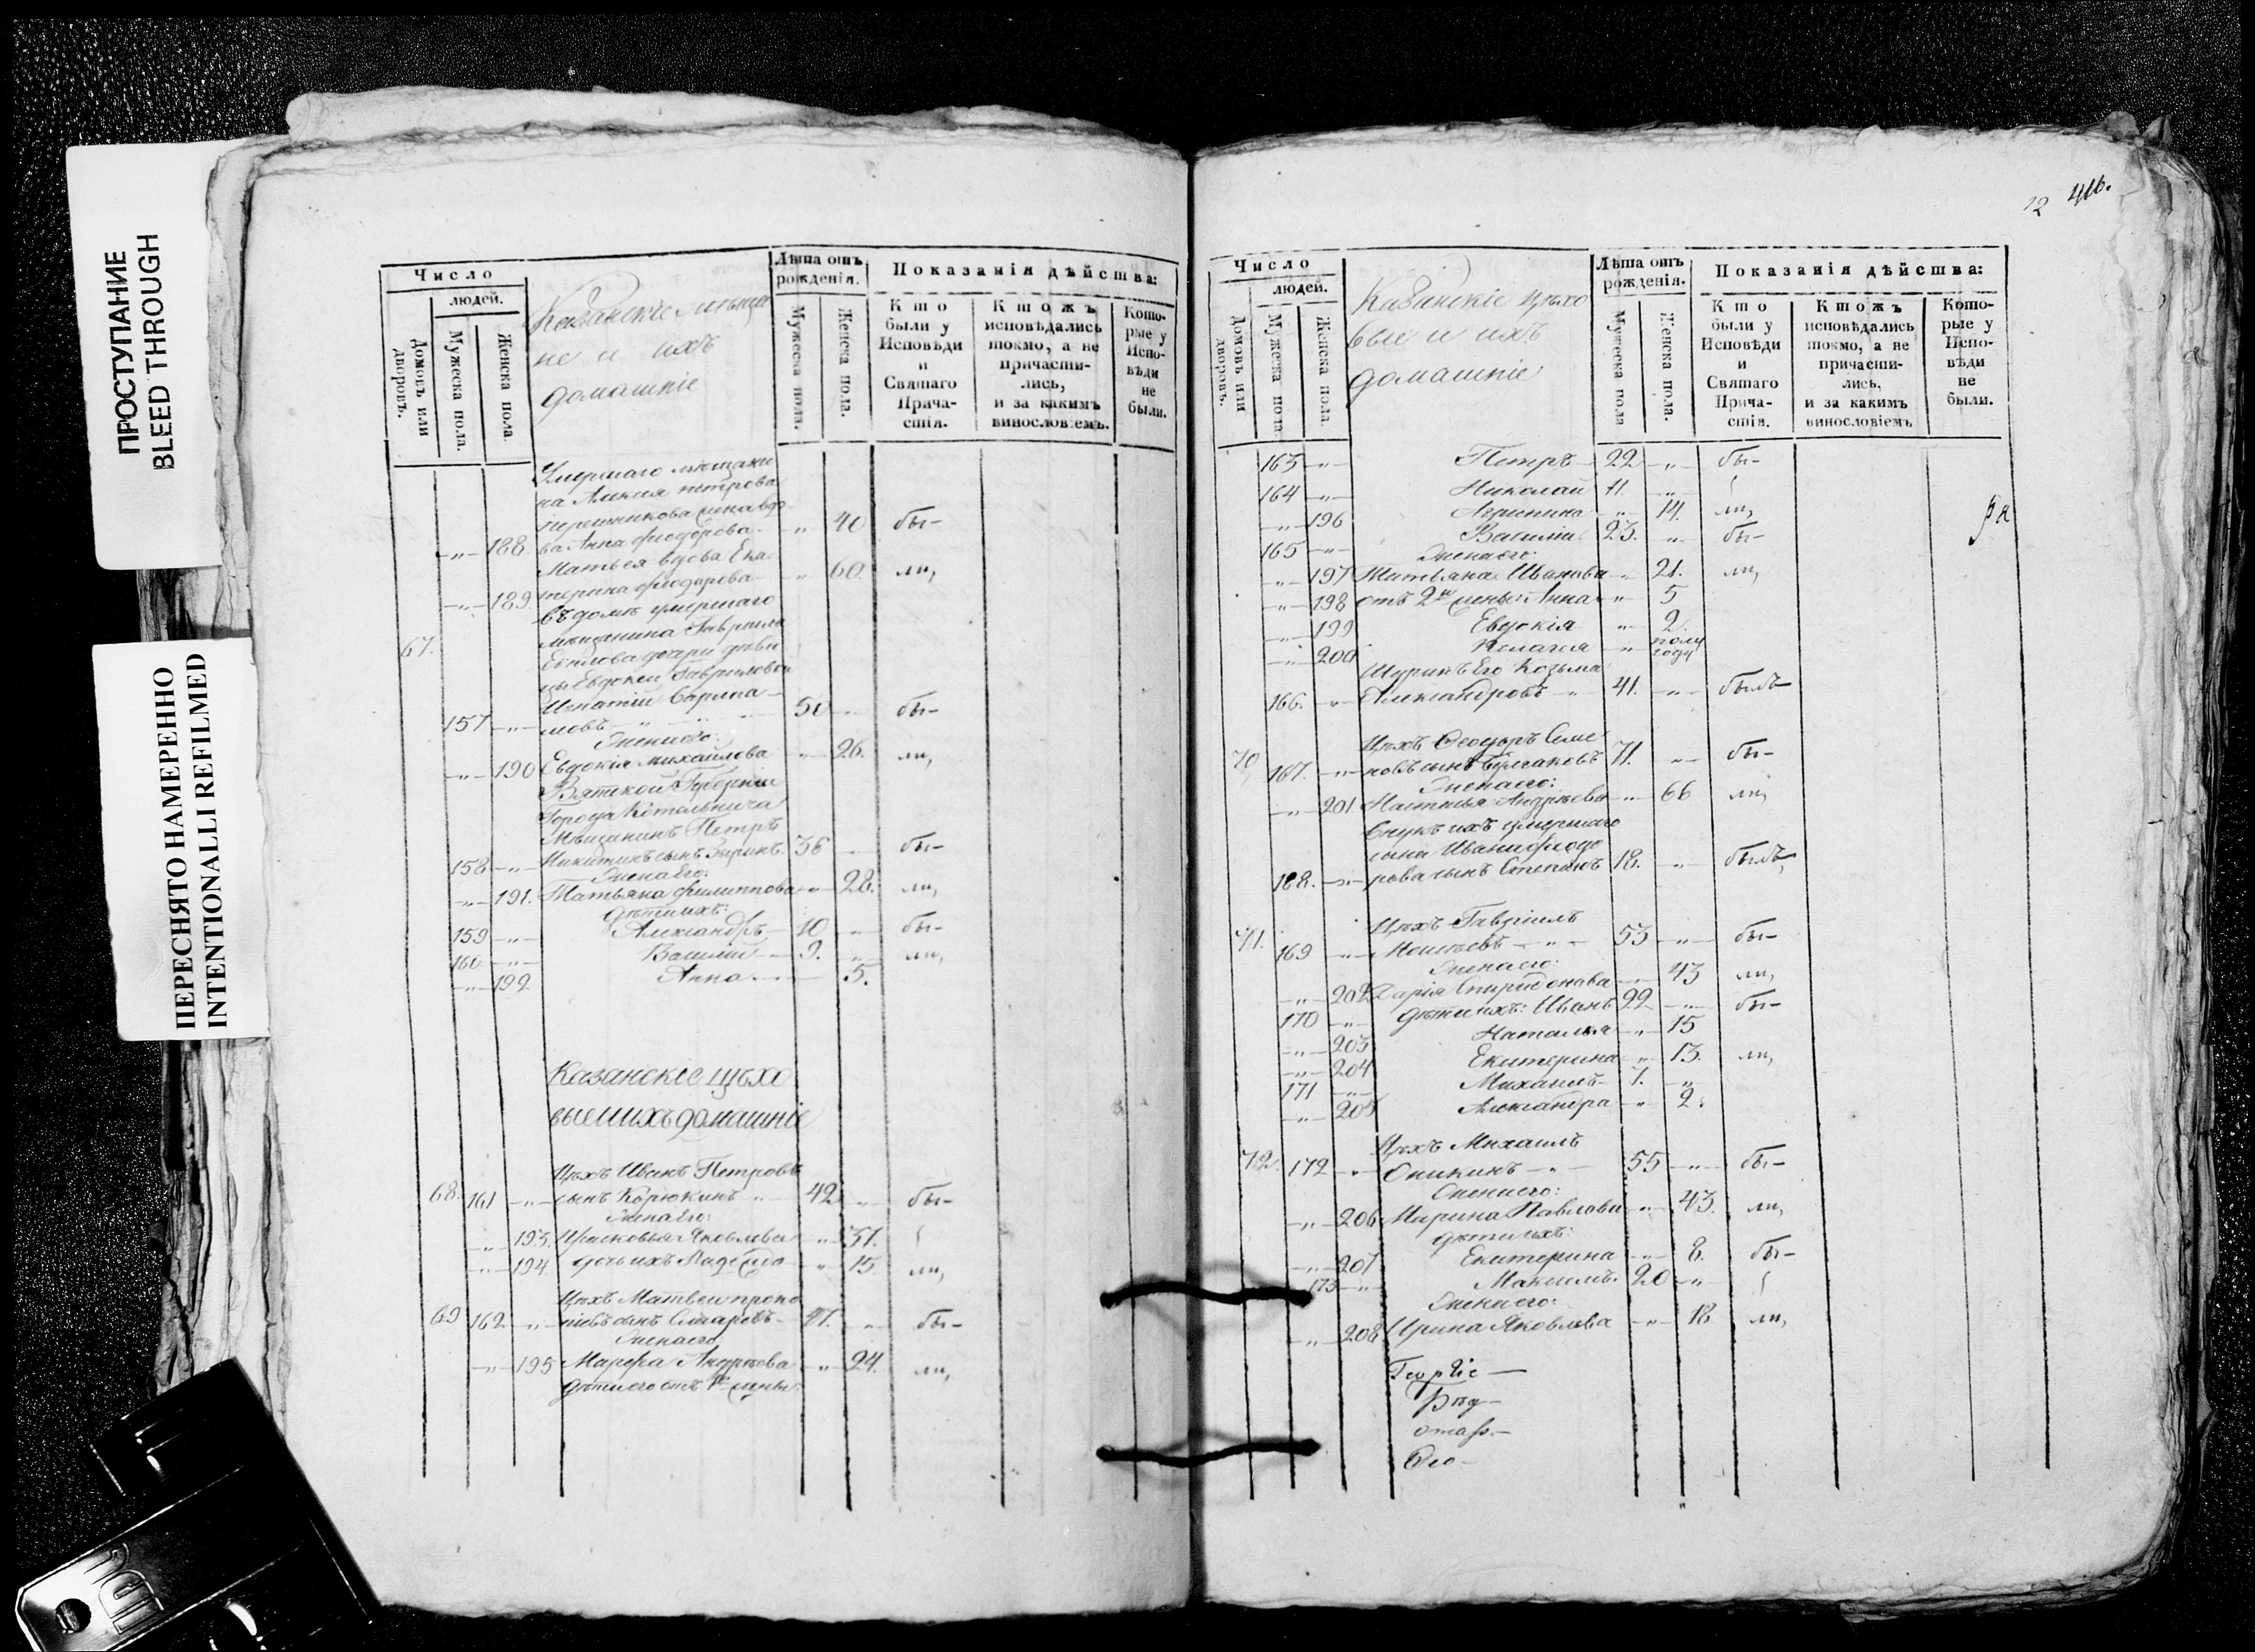 ПРОСТУПАНИЕ
BLEED THROUGH
ПЕРЕСНЯТО НАМЕРЕННО
INTENTIONALLI REFILMED
Число
людей.
Домовъ или дворовъ.
Мужеска пола.
Женска пола.
Казанскіе мѣща
не и ихъ
домашніе
Лѣта отъ рожденія.
Мужеска пола.
Женска пола.
Показанія дѣйства:
Кто были у Исповѣди и Святаго Прича-стія.
Ктожъ исповѣдались токмо, а не причасти-лись, и за какимъ винословіемъ.
Кото-рые у Испо-вѣди не были.
Умершаго мѣщани
на Алексея петрова
жена вдо
-„- 188. ва Анна Феодорова - „ 40 бы-
Мать ея вдова Ека
-„- 189. терина Феодорова - „ 60. ли,
въ домѣ умершаго
67. мѣщанина Гавриила
дочери дѣви
цы Евдокеи Гавриловой
Игнатій Варлаа-
157 -„- мовъ - „ - 50 - бы-
Жена его:
-„- 190 Евдокія Михайлова - „ 26. ли,
Вятской Губерніи
Города Котельнича
Мѣщанинъ Петръ
158 -„- Никитинъ сынъ Зыринъ. 36 - бы-
Жена Его:
-„- 191. Татьяна Филиппова - „ 28. ли,
дѣти ихъ:
159 -„- Александръ - 10 - бы-
160 -„- Василій - 9. „ ли,
-„- 192 Анна - - 5.
Казанскіе цѣхо
вые и ихъ домашніе
Цѣхъ Иванъ Петровъ
68. 161 -„- сынъ Корюкинъ „ 42 „ бы-
Жена Его:
„ 193. Прасковья Яковлева „ 37.
-„- 194 дочь ихъ Надежда - „ 15 ли,
Цѣхъ Матвеи проко
69 162 -„- піевъ сынъ - 47. „ бы-
Жена его
-„- 195 Марфа Андрѣева „ 24. ли,
дѣти его отъ 1й жены
12 416.
Число
людей.
Домовъ или дворовъ.
Мужеска пола
Женска пола.
Казанскіе цѣхо
вые и ихъ
домашніе
Лѣта отъ рожденія.
Мужеска пола
Женска пола.
Показанія дѣйства:
Кто были у Исповѣди и Святаго Прича-стія.
Ктожъ исповѣдались токмо, а не причасти-лись, и за какимъ винословіемъ
Кото-рые у Испо-вѣди не были.
163 -„- Петръ - 22 -„- бы-
164 -„- Николай 11. -„-
-„- 196 Агрипина - „ 14. ли,
165 -„- Василій 23. „ бы-
Жена его:
-„- 197 Татьяна Иванова - „ 21. ли,
-„- 198 отъ 2й жены: Анна „ 5
-„- 199 Евдокія „ 2.
-„- 200 Пелагея - „ полу году
Шуринъ Его Козьма
166. -„- Александровъ - „ 41. -„- былъ-
Цѣхъ Феодоръ Семе
70 167. -„- новъ сынъ Булгаковъ 71. -„- бы-
Жена его:
-„- 201. Наталья Андрѣева - „ 66 ли,
Внукъ ихъ умершаго
сына Ивана Феодо
188. -„- рова сынъ Степанъ 18. „ былъ-
Цѣхъ Гавріилъ
71. 169 -„- Моисѣевъ - „ 53 -„- бы-
Жена его:
-„- 202 Дарія Спиридонова -„- 43 ли,
170 -„- дѣти ихъ: Иванъ 22 -„- бы-
-„- 203 Наталья - „ 15
-„- 204 Екатерина - „ 13. ли,
171 -„- Михаилъ - 7. „
-„- 205 Александра - „ 2.
Цѣхъ Михаилъ
72. 172 -„- Оникинъ - „ 55 -„- бы-
Жена его:
-„- 206 Марина Павлова - „ 43. ли,
дѣти ихъ:
-„- 207 Екатерина -„- 8. бы-
173 -„- Максимъ. 20 -„-
Жена его:
-„- 208 Ирина Яковлева -„- 18 ли,
Георгіе -